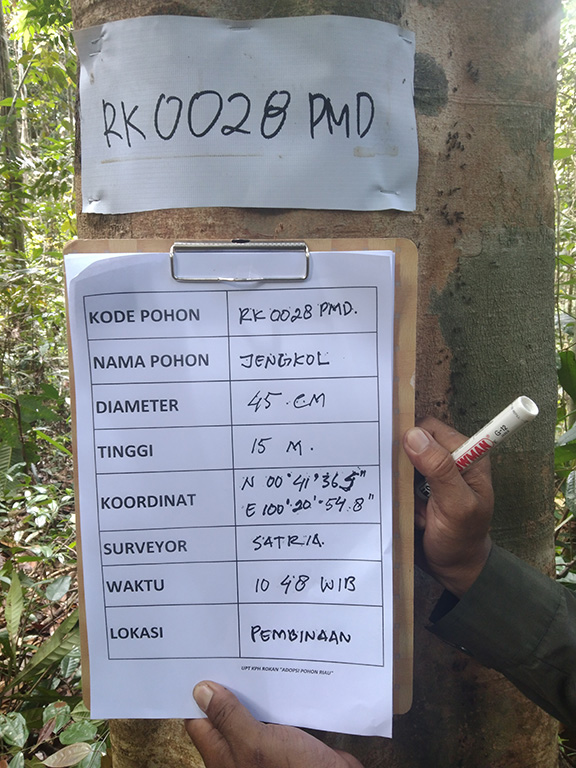 RK0028 PMD
KODE POHON RK 0028 PMD.
NAMA POHON JENGKOL
DIAMETER 45 CM
TINGGI 15 M.
KOORDINAT N 00°41'36.5"
E 100°.20'.54.8"
SURVEYOR SATRIA.
WAKTU 10 48 WIB
LOKASI PEMBINAAN
UPT KPH ROKAN "ADOPSI POHON RIAU"
G-12